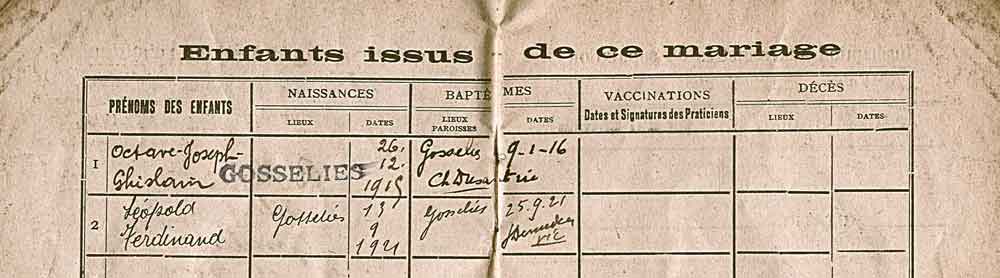 Enfants issus de ce mariage
PRÉNOMS DES ENFANTS NAISSANCES BAPTÊMES VACCINATIONS DÉCÈS
LIEUX DATES LIEUX PAROISSES DATES Dates et Signatures des Praticiens LIEUX DATES
1 Octave-Joseph- 26. Gosselies 9-1-16
Ghislain GOSSELIES 12.
1915
2 Léopold Gosselies 13 Gosselies 25.9.21
Ferdinand 9
1921